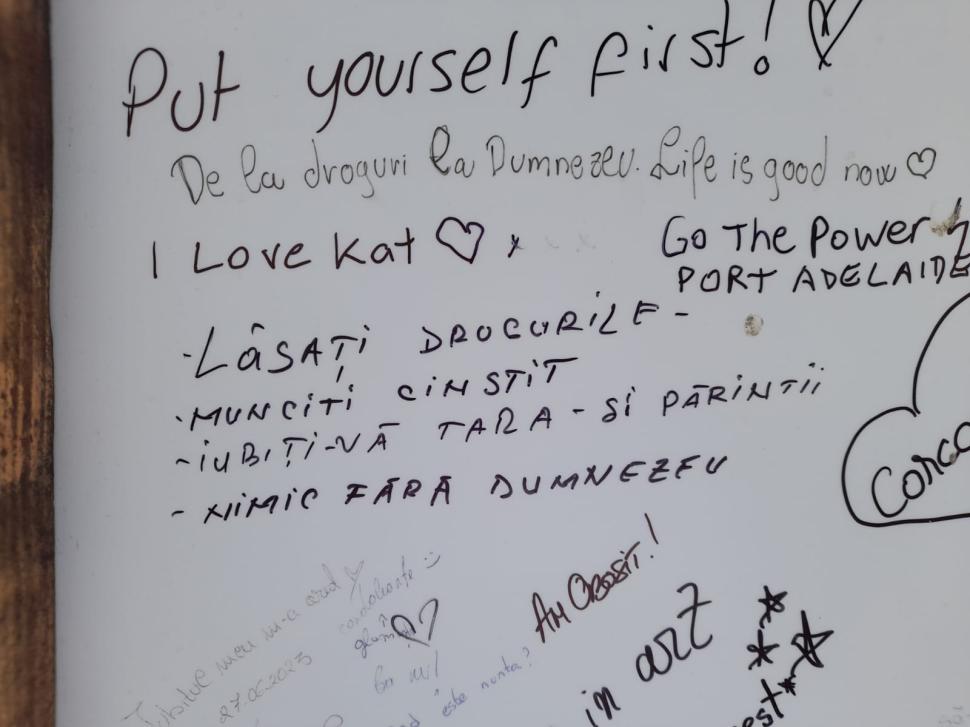 Put yourself first! ♡
De la droguri la Dumnezeu. Life is good now ♡
I Love Kat ♡ x
Go The Power
PORT ADELAIDE
- LÂSAȚI DROGURILE -
- MUNCIȚI CINSTIT
- IUBIȚI-VĂ TARA - SI PĂRINTII
- NIMIC FĂRĂ DUMNEZEU
AM OBOSIT!
Iubitul meu m-a
27.06.2023
condoleante :)
este nunta?
in art